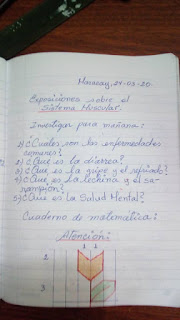 Maracay, 24-03-20
Exposiciones sobre el
Sistema Muscular.
Investigar para mañana:
1) ¿Cuales son las enfermedades
comunes?
2) ¿Que es la diarrea?
3) ¿Que es la gripe y el resfriado?
4) ¿Que es La Lechina y el sa-
rampión?
5) ¿Que es La Salud Mental?
Cuaderno de matemática:
Atención:
1 1
2
3